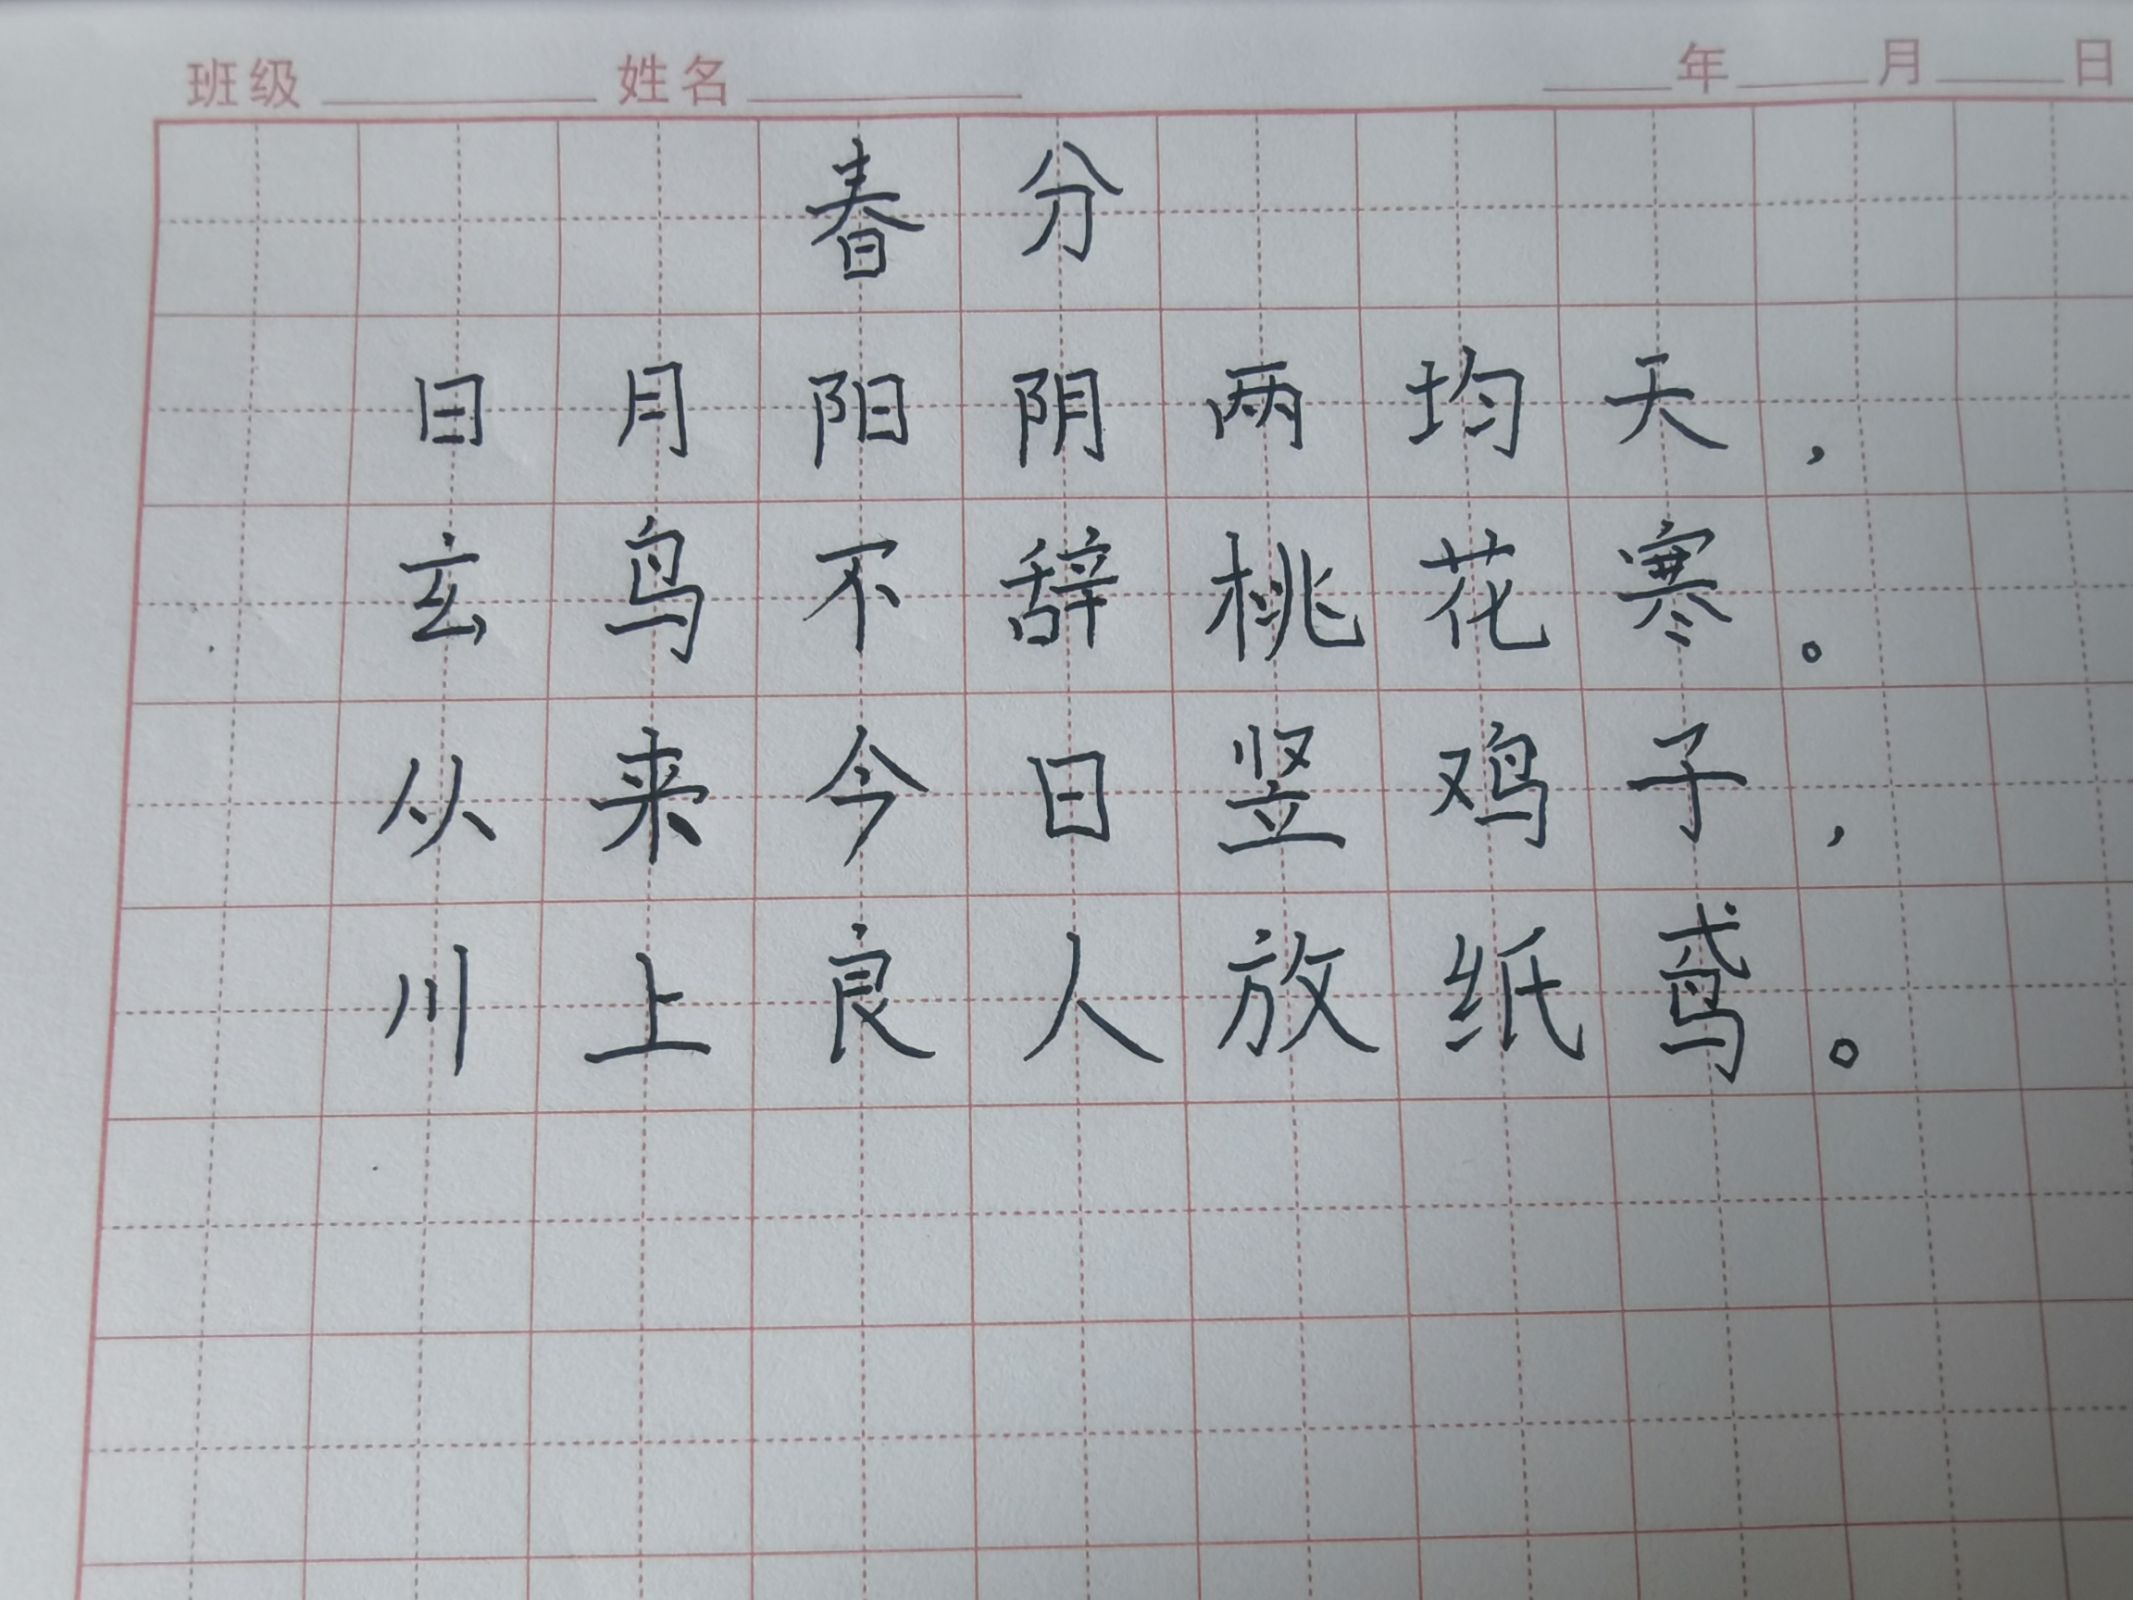 班级 姓名 年 月 日
春分
日月阳阴两均天，
玄鸟不辞桃花寒。
从来今日竖鸡子，
川上良人放纸鸢。